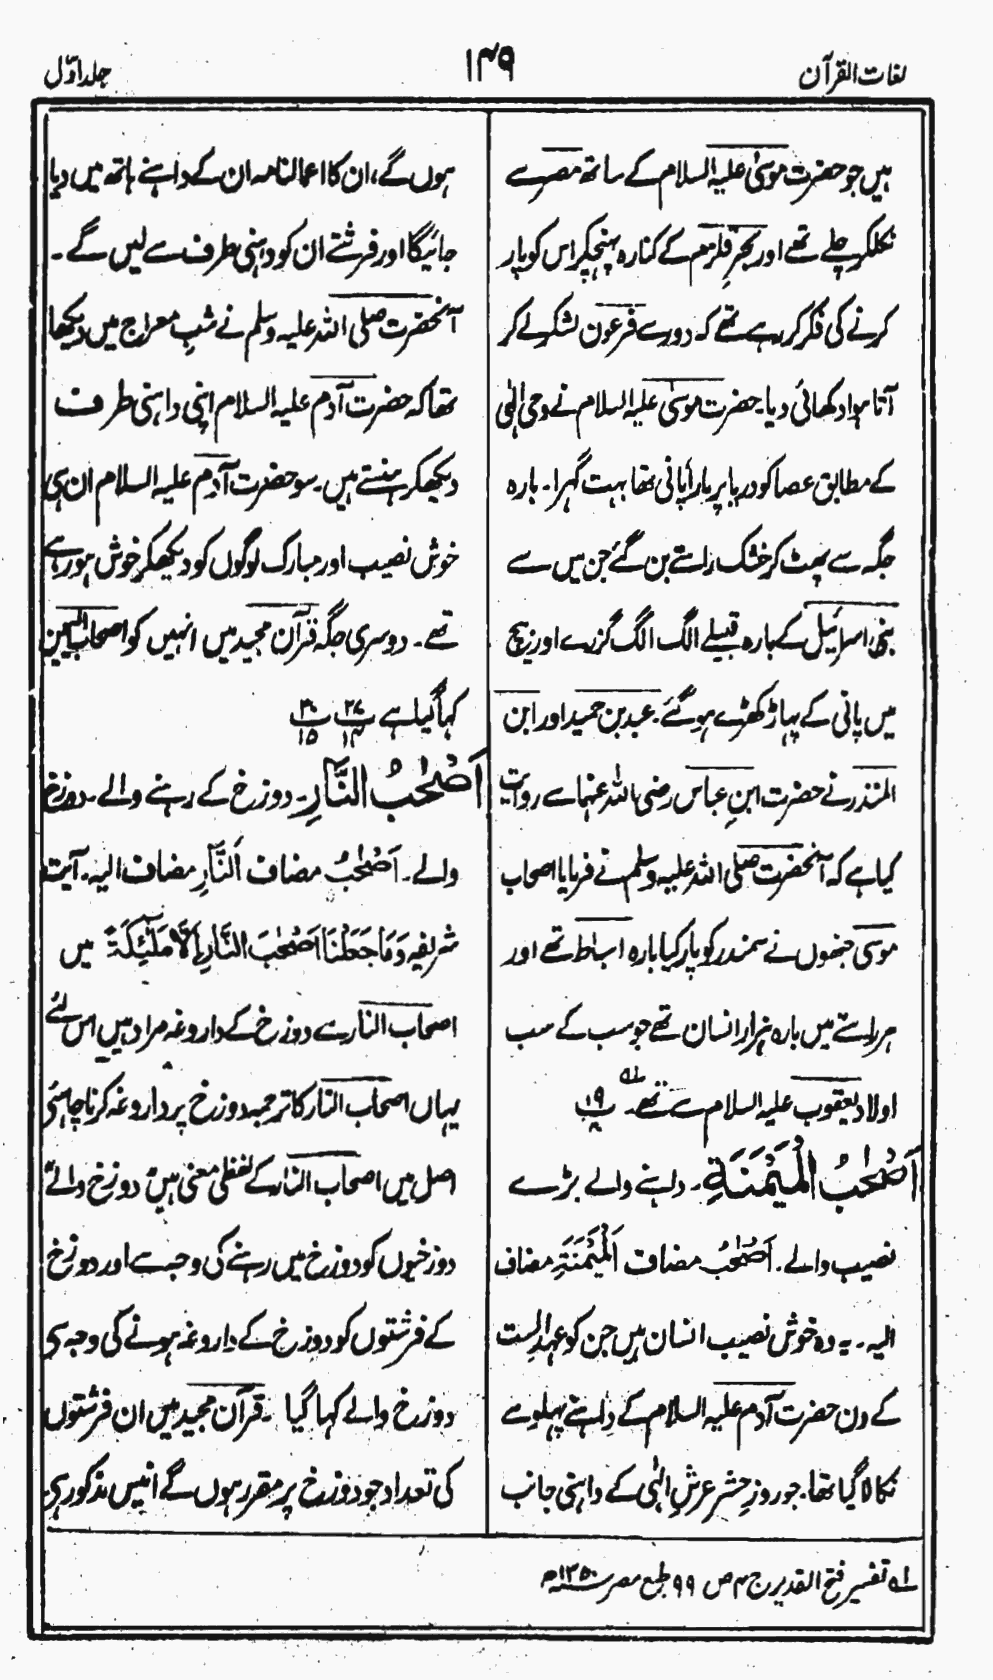 لغات القرآن
۱۴۹
جلد اوّل
ہیں جو حضرت موسیٰ علیہ السلام کے ساتھ مصر سے
نکلکر چلے تھے اور بحرِ قلزم کے کنارہ پہنچکر اس کو پار
کرنے کی فکر کر رہے تھے کہ دور سے فرعون لشکر لے کر
آتا ہوا دکھائی دیا۔ حضرت موسیٰ علیہ السلام نے وحی الٰہی
کے مطابق عصا کو دریا پر مارا پانی تھا بہت گہرا۔ بارہ
جگہ سے پھٹ کر خشک راستے بن گئے جن میں سے
بنی اسرائیل کے بارہ قبیلے الگ الگ گزرے اور بیچ
میں پانی کے پہاڑ کھڑے ہو گئے۔ عبد بن حمید اور ابن
المنذر نے حضرت ابنِ عباس رضی اللہ عنہما سے روایت
کیا ہے کہ آنحضرت صلی اللہ علیہ وسلم نے فرمایا اصحاب
موسیٰ جنھوں نے سمندر کو پار کیا بارہ اسباط تھے اور
ہر راستے میں بارہ ہزار انسان تھے جو سب کے سب
اولاد یعقوب علیہ السلام سے تھے۔ لہ ۱۹ ۸
اَصْحٰبُ الْمَيْمَنَةِ۔ داہنے والے بڑے
نصیب والے۔ اَصْحٰبُ مضاف اَلْمَيْمَنَةِ مضاف
الیہ۔ یہ وہ خوش نصیب انسان ہیں جن کو عہد الست
کے دن حضرت آدم علیہ السلام کے داہنے پہلو سے
نکالا گیا تھا۔ جو روزِ حشر عرشِ الٰہی کے داہنی جانب
ہوں گے، ان کا اعمالنامہ ان کے داہنے ہاتھ میں دیا
جائیگا اور فرشتے ان کو دہنی طرف سے لیں گے۔
آنحضرت صلی اللہ علیہ وسلم نے شبِ معراج میں دیکھا
تھا کہ حضرت آدم علیہ السلام اپنی داہنی طرف
دیکھکر ہنستے ہیں۔ سو حضرت آدم علیہ السلام ان ہی
خوش نصیب اور مبارک لوگوں کو دیکھکر خوش ہو رہے
تھے۔ دوسری جگہ قرآن مجید میں انہیں کو اصحاب الیمین
کہا گیا ہے ۲۷ ۱۴ ۳۰ ۱۵
اَصْحٰبُ النَّارِ۔ دوزخ کے رہنے والے۔ دوزخ
والے۔ اَصْحٰبُ مضاف اَلنَّارِ مضاف الیہ۔ آیت
شریفہ وَمَا جَعَلْنَا اَصْحٰبَ النَّارِ اِلَّا مَلٰٓئِكَةً میں
اصحاب النار سے دوزخ کے داروغہ مراد ہیں اس لئے
یہاں اصحاب النار کا ترجمہ دوزخ پر داروغہ کرنا چاہئے
اصل میں اصحاب النار کے لفظی معنی ہیں دوزخ والے
دوزخیوں کو دوزخ میں رہنے کی وجہ سے اور دوزخ
کے فرشتوں کو دوزخ کے داروغہ ہونے کی وجہ سی
دوزخ والے کہا گیا ۔ قرآن مجید میں ان فرشتوں
کی تعداد جو دوزخ پر مقرر ہوں گے انیس مذکور ہی
لہ تفسیر فتح القدیر ج ۴ ص ۹۹ طبع مصر ۱۳۵۰ھ